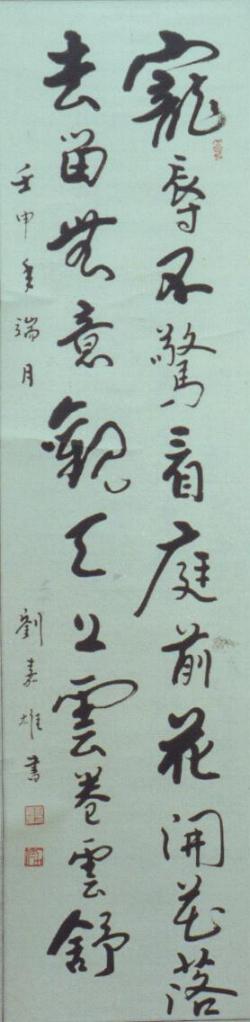 寵辱不驚看庭前花開花落
去留無意觀天上雲卷雲舒
壬申年端月
劉嘉雄書